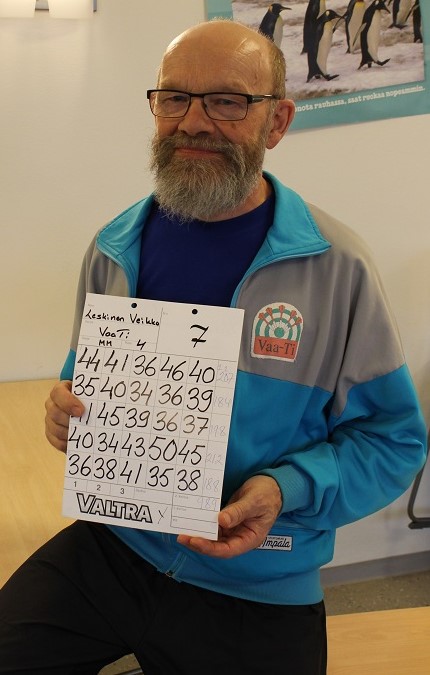 onota rauhassa, saat ruokaa nopeammin.
Leskinen Veikko
VaaTi
MM 4
7
44 41 36 46 40 207
35 40 34 36 39 184
1 45 39 36 37
40 34 43 50 45 212
36 38 41 35 38 188
1 2 3
VALTRA
Vaa-Ti
Impala